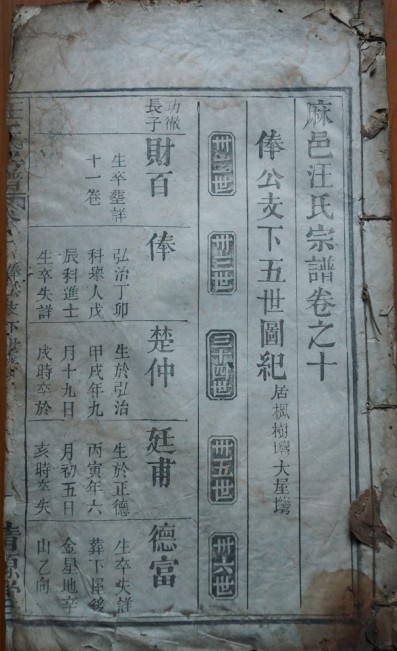 麻邑汪氏宗譜卷之十
俸公支下五世圖紀居楓樹壪大屋塆
卅二世
卅三世
三十四世
卅五世
卅六世
功徹長子
財百
生卒塋詳十一卷
俸
弘治丁卯科舉人戊辰科進士生卒失詳
楚仲
生於弘治甲戌年九月十九日戌時卒於
廷甫
生於正德丙寅年六月初五日亥時卒失
德富
生卒失詳葬下
金星地辛山乙向